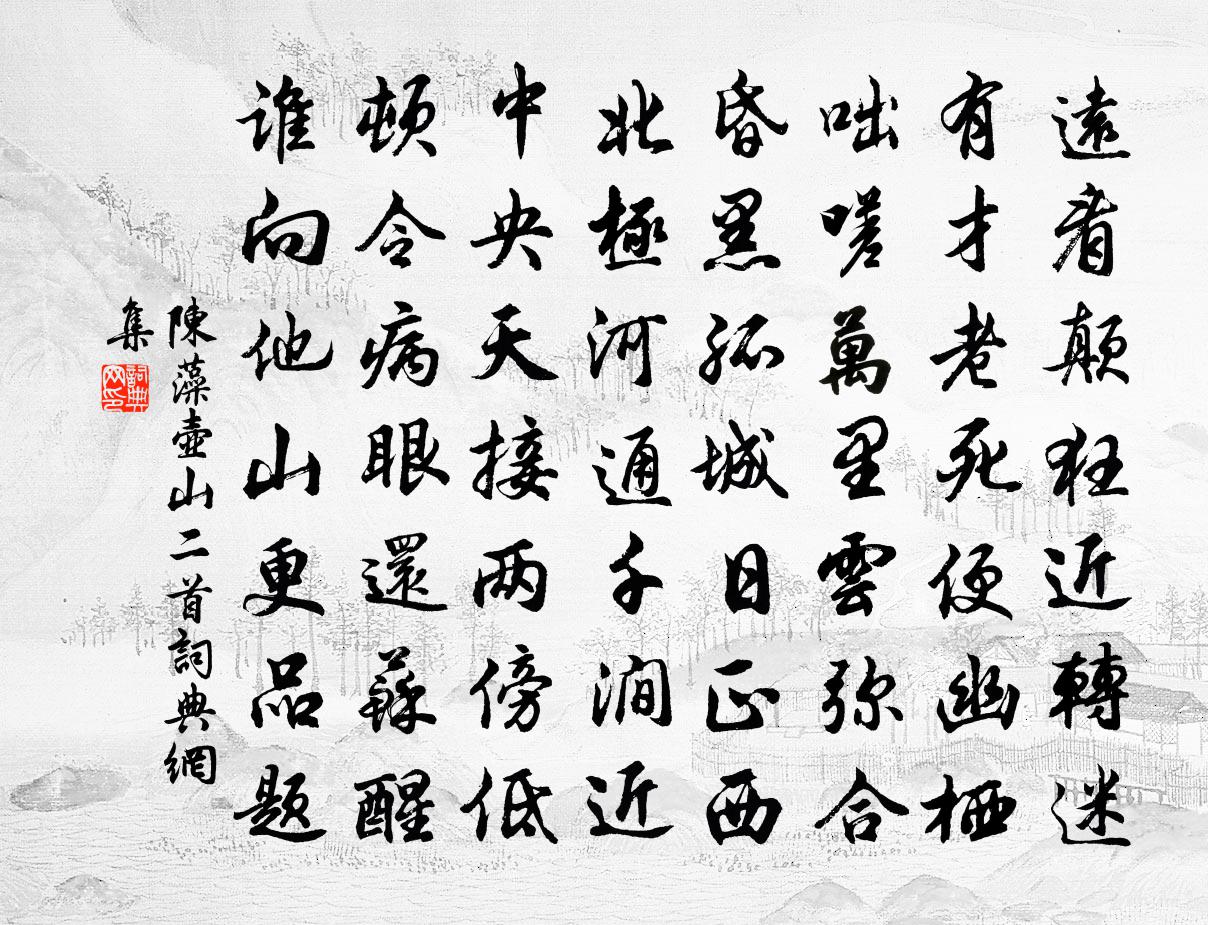 遠看顛狂近轉迷
有才老死便幽栖
咄嗟萬里雲弥合
昏黑孤城日正西
北極河通千澗近
中央天接两傍低
頓令病眼還蘇醒
谁向他山更品题
陳藻壺山二首詞典網
集
詞典
网印